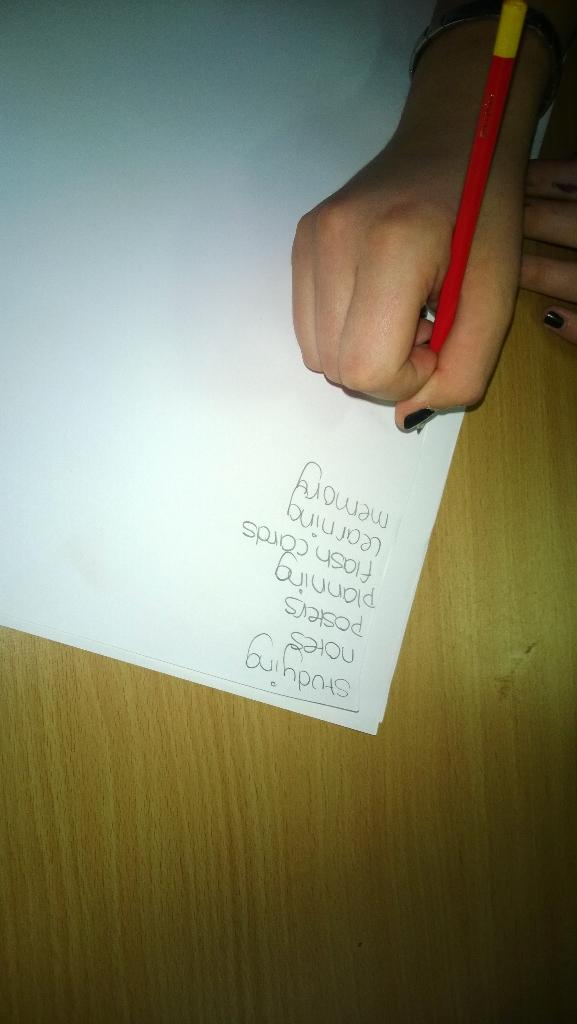 studying
notes
posters
planning
flash cards
learning
memory